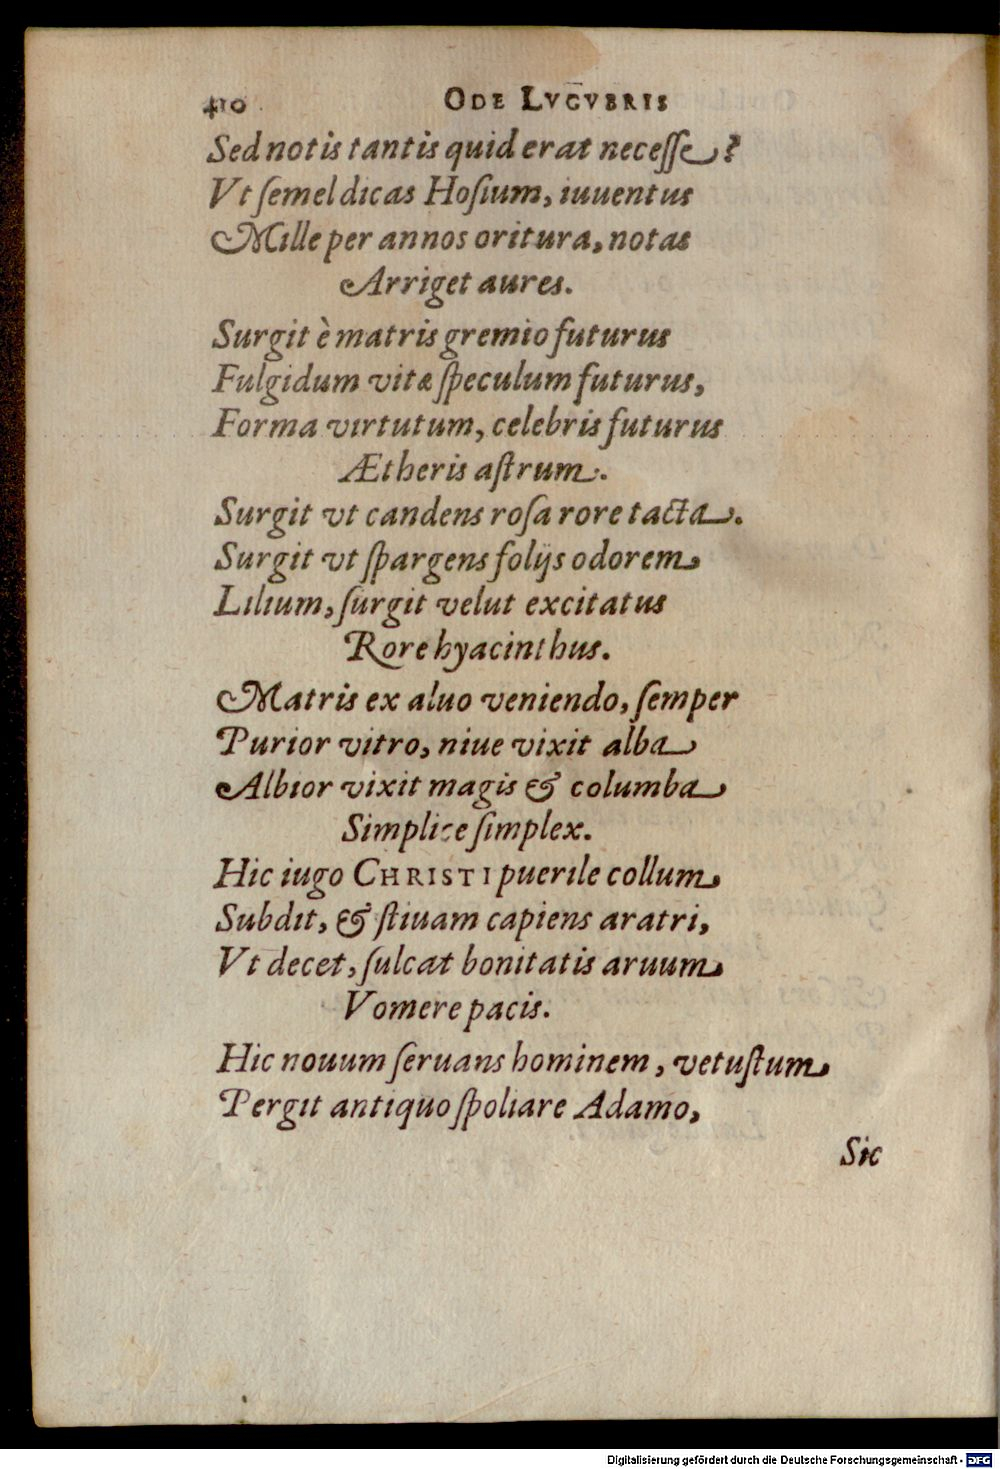 410 ODE LVCVBRIS
Sed notis tantis quid erat necesse?
Vt semel dicas Hosium, iuuentus
Mille per annos oritura, notas
Arriget aures.
Surgit è matris gremio futurus
Fulgidum vitæ speculum futurus,
Forma virtutum, celebris futurus
Ætheris astrum.
Surgit vt candens rosa rore tacta.
Surgit vt spargens folijs odorem
Lilium, surgit velut excitatus
Rore hyacinthus.
Matris ex aluo veniendo, semper
Purior vitro, niue vixit alba
Albior vixit magis & columba
Simplice simplex.
Hic iugo CHRISTI puerile collum
Subdit, & stiuam capiens aratri,
Vt decet, sulcat bonitatis aruum
Vomere pacis.
Hic nouum seruans hominem, vetustum
Pergit antiquo spoliare Adamo,
Sic
Digitalisierung gefördert durch die Deutsche Forschungsgemeinschaft - DFG